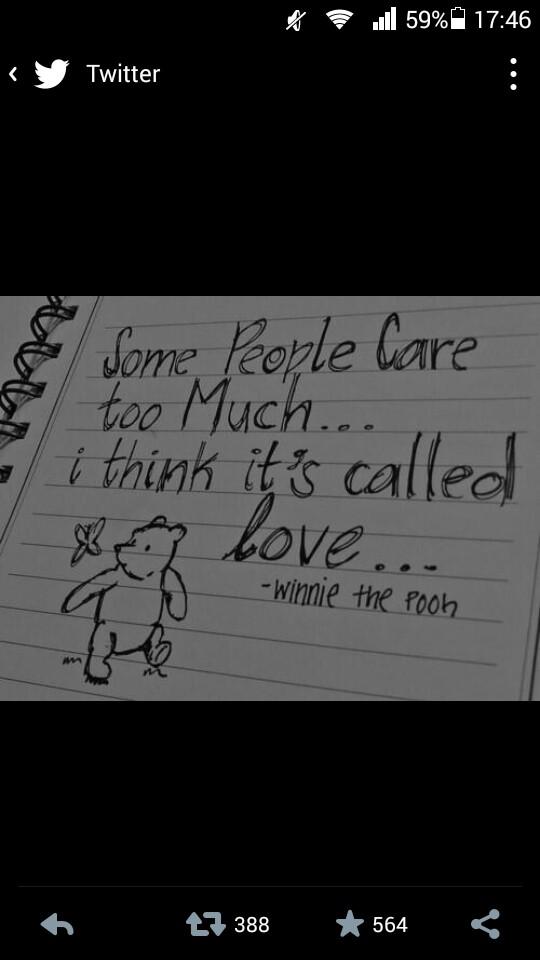 59% 17:46
Twitter
Some People Care
too Much...
i think it's called
love...
-winnie the Pooh
388 564